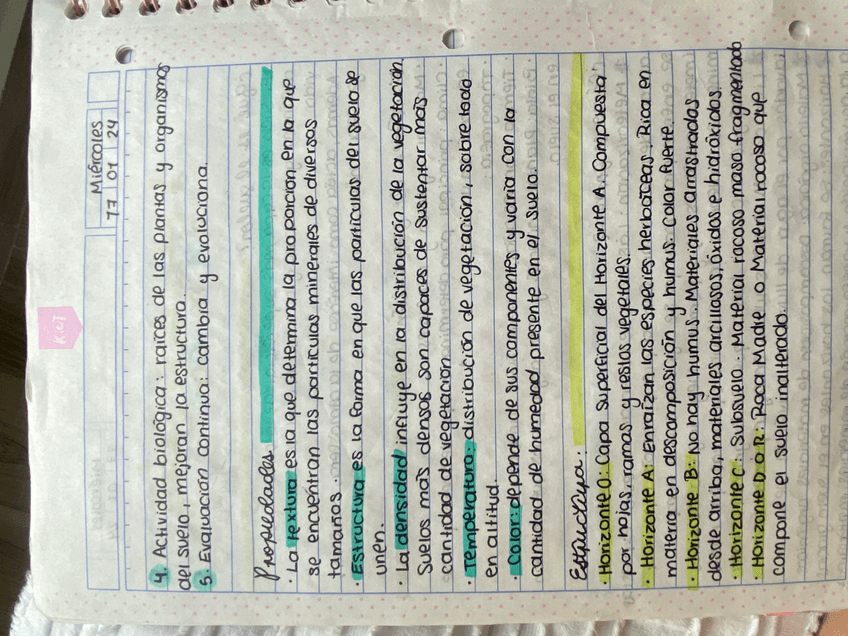 Miércoles
17 01 24
4. Actividad biológica: raíces de las plantas y organismos
del suelo, mejoran la estructura.
5. Evaluación continua: cambia y evoluciona.
Propiedades.
· La textura es la que determina la proporción en la que
se encuentran las partículas minerales de diversos
tamaños.
· Estructura es la forma en que las partículas del suelo se
unen.
· La densidad influye en la distribución de la vegetación.
Suelos más densos son capaces de sustentar más
cantidad de vegetación.
· Temperatura: distribución de vegetación, sobre todo
en altitud.
· Color: depende de sus componentes y varía con la
cantidad de humedad presente en el suelo.
Estructura.
· Horizonte O: Capa superficial del Horizonte A. Compuesta
por hojas, ramas y restos vegetales.
· Horizonte A: Enraízan las especies herbáceas. Rica en
materia en descomposición y humus. Color fuerte.
· Horizonte B: No hay humus. Materiales arrastrados
desde arriba, materiales arcillosos, óxidos e hidróxidos.
· Horizonte C: Subsuelo. Material rocoso maso fragmentado
· Horizonte D o R: Roca Madre o Material rocoso que
compone el suelo inalterado.